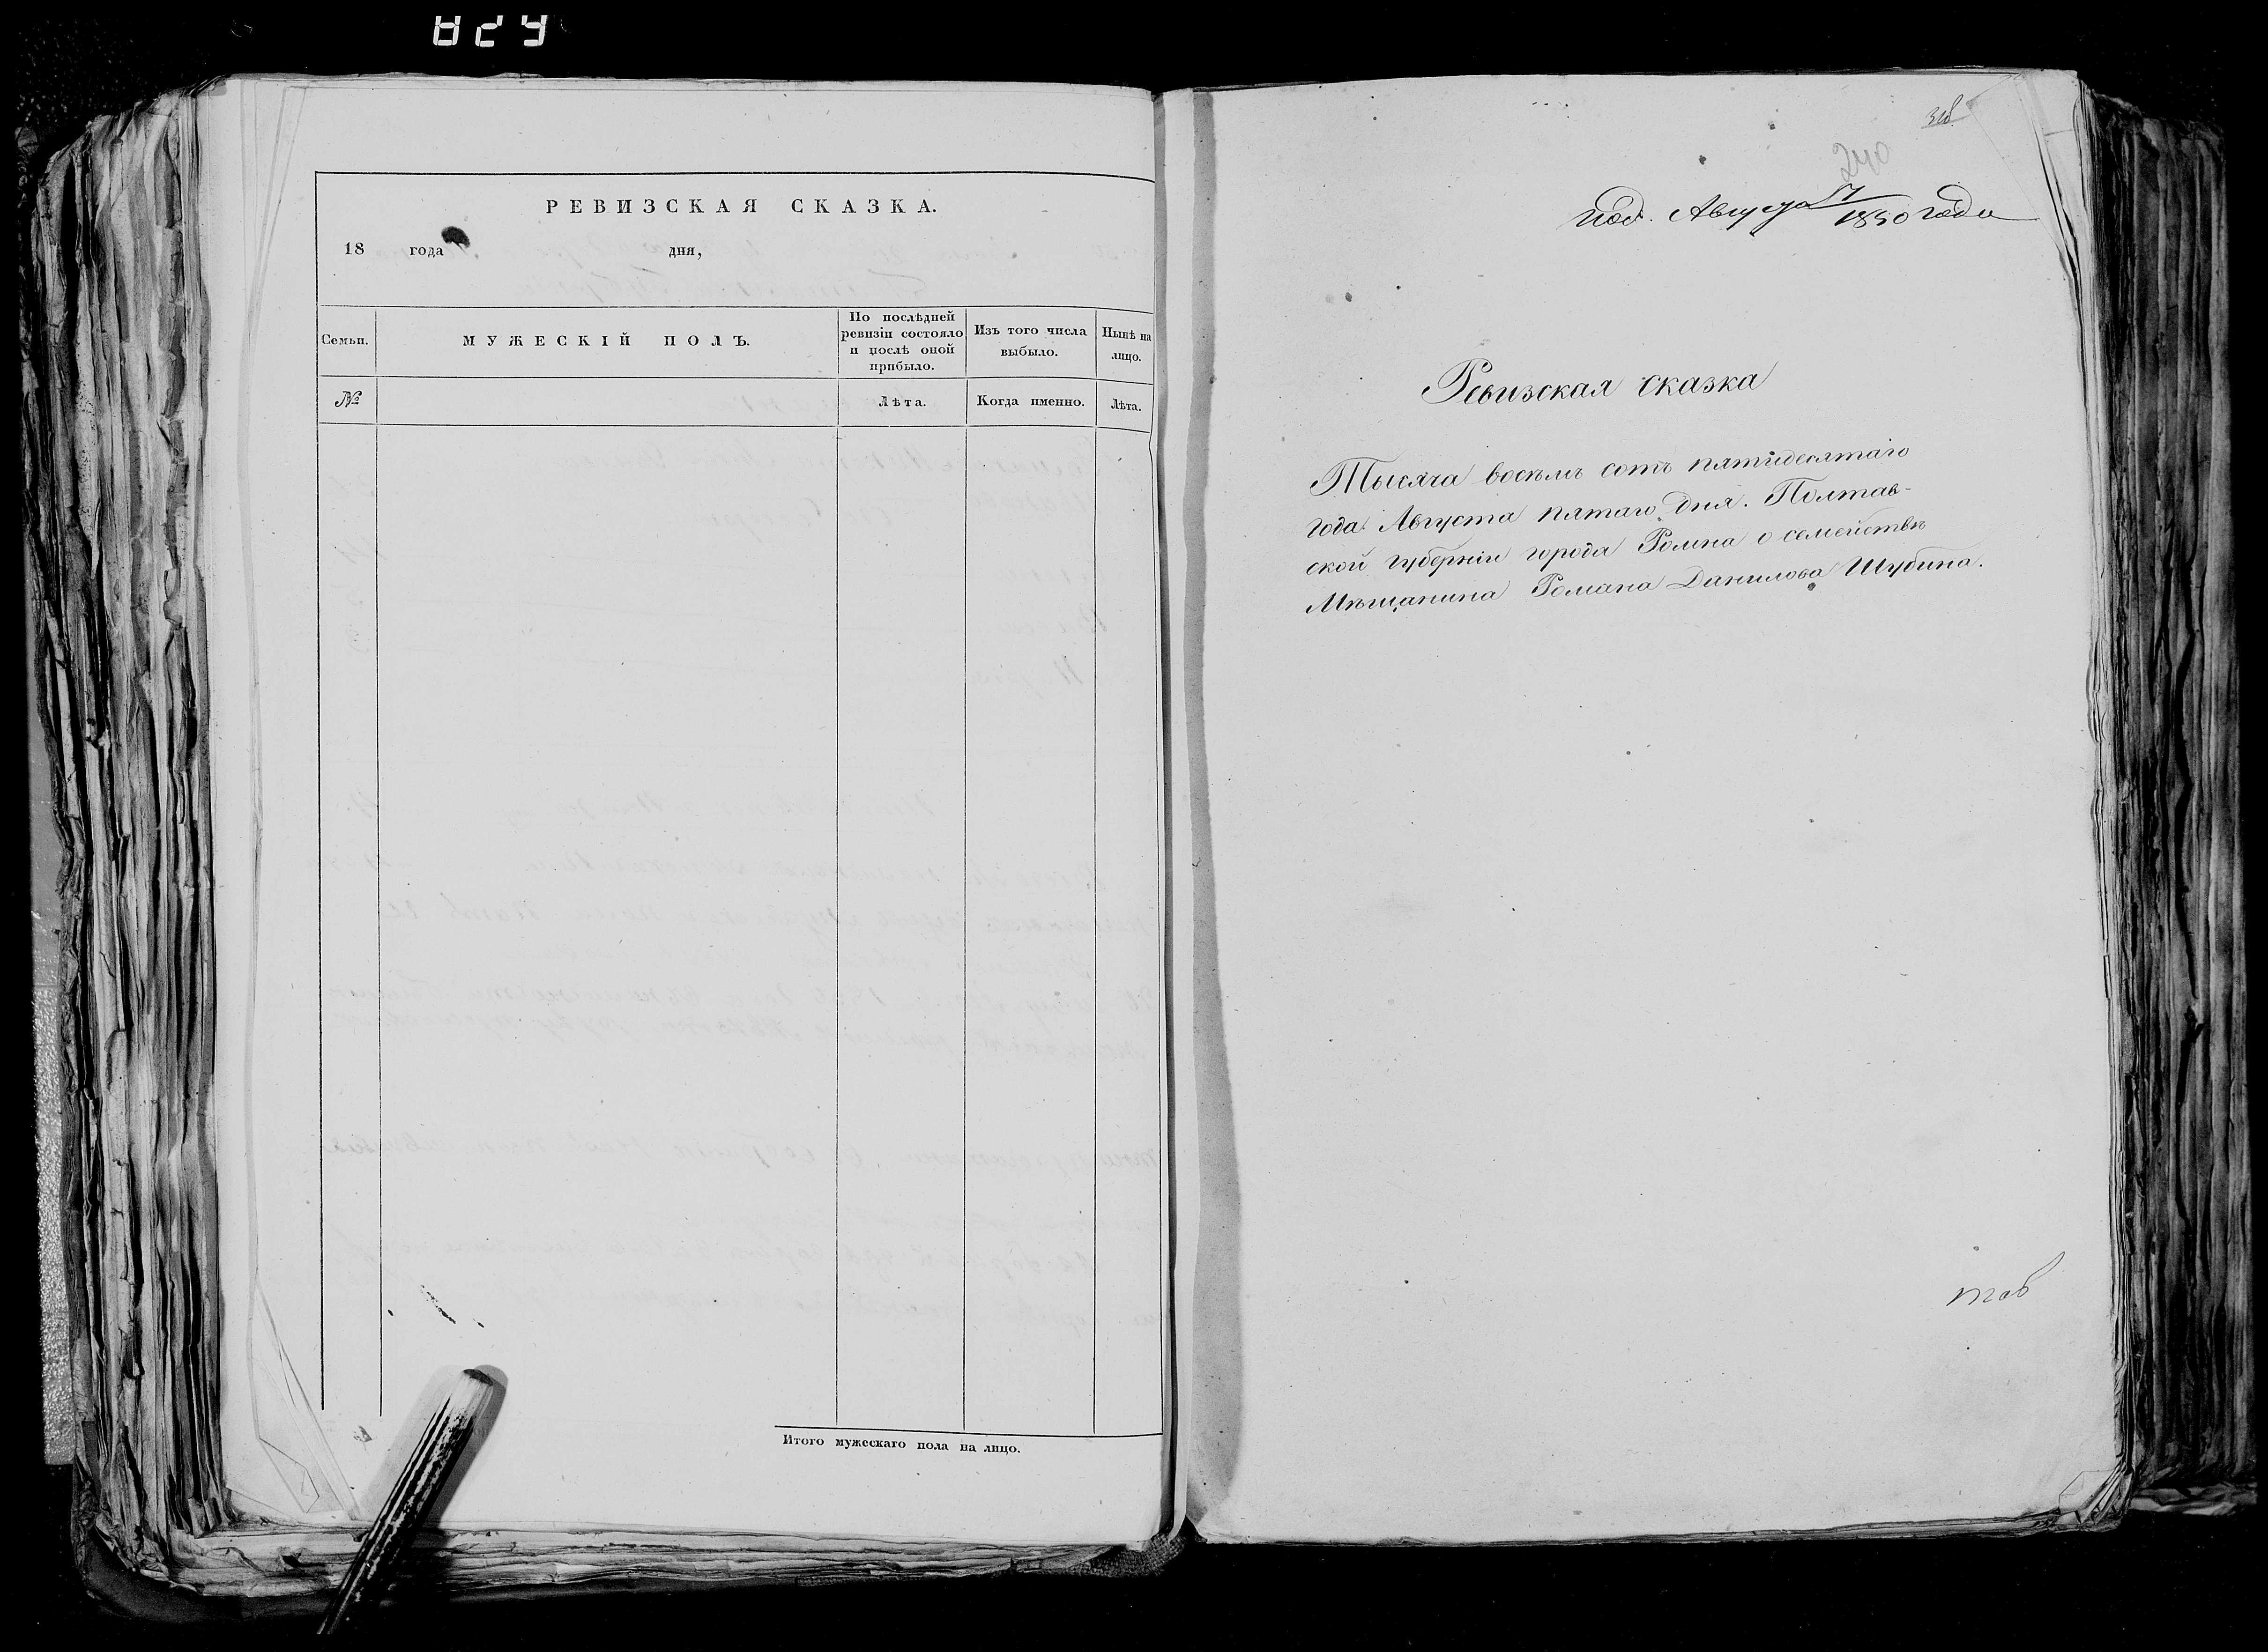 829
РЕВИЗСКАЯ СКАЗКА.
18 года дня,
Семьи.
МУЖЕСКІЙ ПОЛЪ.
По послѣдней
ревизіи состояло
и послѣ оной
прибыло.
Изъ того числа
выбыло.
Нынѣ на
лицо.
№
Лѣта.
Когда именно.
Лѣта.
Итого мужескаго пола на лицо.
240
под. Августа 7 1850 года
Ревизская сказка
Тысяча восемь сотъ пятидесятаго
года Августа пятаго дня. Полтав-
ской губерніи города Ромна о семействѣ
Мѣщанина Романа Данилова Шубина.